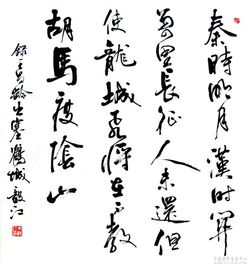 秦時明月漢時關
萬里長征人未還但
使龍城飛將在不教
胡馬度陰山
錄王昌齡出塞鷹城毅江